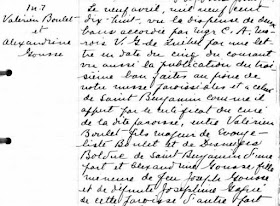 M-7
Valérien Boulet
et
Alexandrine
Gousse
Le neuf avril, mil neuf cent
dix-huit, vu la dispense de deux
bans accordée par Mgr C. A. Ma-
rois V. G. de Québec par une let-
tre en date du cinq du courant
vu aussi la publication du troi-
sième ban faite au prône de
notre messe paroissiales et a celui
de Saint Benjamin comme il
appert par le certificat du curé
de la dite paroisse, entre Valérien
Boulet fils majeur de Evange-
liste Boulet et de Démerises
Bolduc de Saint Benjamin d'une
part et Alexandrine Gousse fille
mineure de feu Joseph Gousse
et de défunte Joséphine
de cette paroisse d'autre part